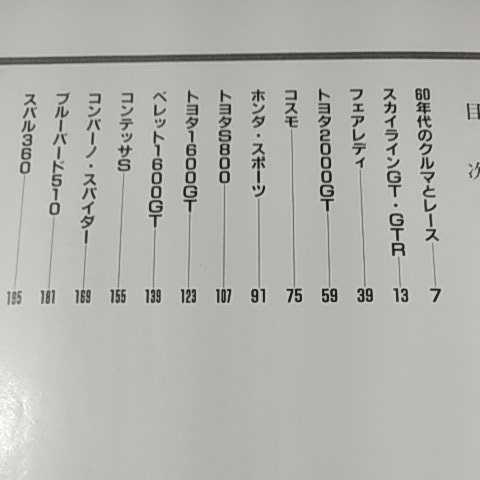 目次
60年代のクルマとレース 7
スカイラインGT・GTR 13
フェアレディ 39
トヨタ2000GT 59
コスモ 75
ホンダ・スポーツ 91
トヨタS800 107
トヨタ1600GT 123
ベレット1600GT 139
コンテッサS 155
コンパーノ・スパイダー 169
ブルーバード510 181
スバル360 195